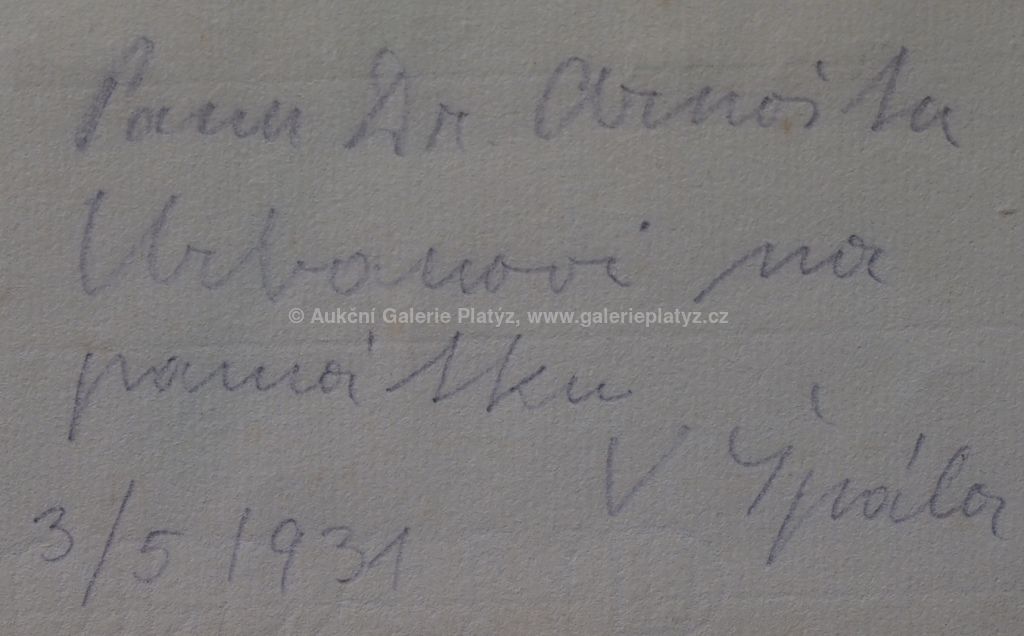 Panu Dr. Arnoštu
Urbanovi na
© Aukční Galerie Platýz, www.galerieplatyz.cz
památku
V Špála
3/5 1931